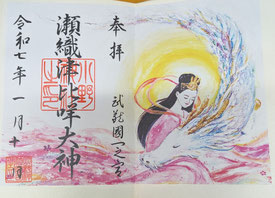 奉拝
武蔵國一之宮
瀬織津比咩大神
小野
令和七年一月十